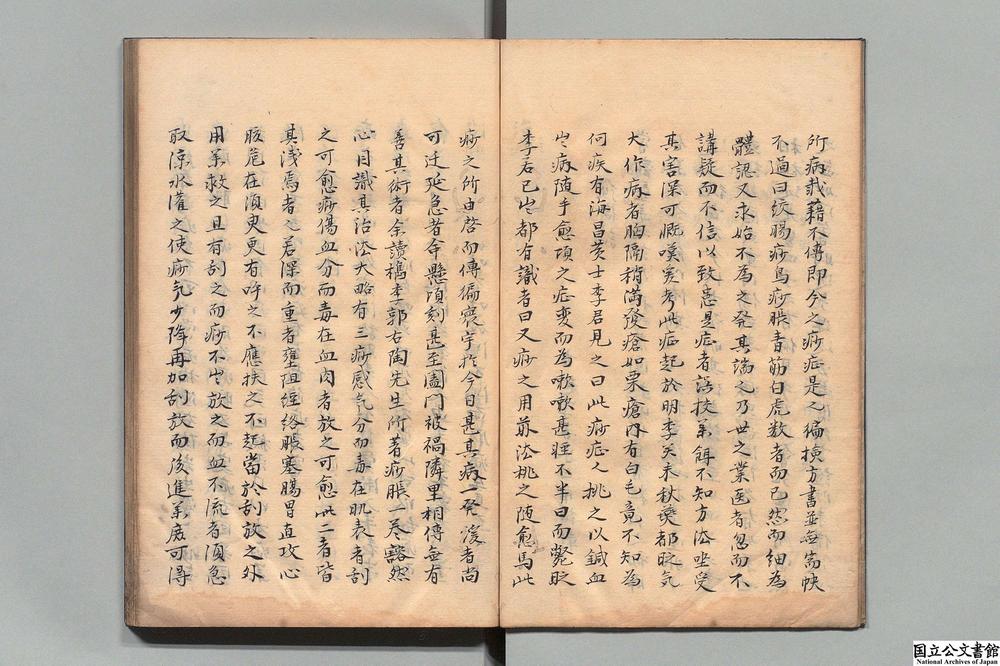 所病載藉不傳即今之痧症是也徧検方書並無耑帙
不過曰絞腸痧烏痧脹青筋白虎数者而已然而細為
體認又求始不為之発其端也乃世之業医者忽而不
講疑而不信以致患是症者誤投薬餌不知方法坐受
其害深可慨嘆矣考此症起於明季癸未秋燕都貶気
大作病者胸隔稍満後瘡如粟瘡内有白毛竟不知為
何疾有海昌黄士李君見之曰此痧症也挑之以鍼血
出病随手愈頃之症変而為嗽嗽甚旺不半日而斃貶
李君已出都有識者曰又痧之用前法桃之随愈馬此
痧之所由啓而傳徧寰宇於今日甚其病一発緩者尚
可迁延急者命懸頃刻甚至闔門被禍隣里相傳無有
善其術者余讀檇李郭右陶先生所著痧脹一巻豁然
心目識其治法大略有三痧感気分而毒在肌表者刮
之可愈痧傷血分而毒在血肉者放之可愈此二者皆
其浅焉者也若深而重者壅阻経絡脹塞腸胃直攻心
胺危在須臾更有呼之不應扶之不起當於刮放之外
用薬救之且有刮之而痧不出放之而血不流者須急
取凉水灌之使痧気少降再加刮放而後進薬庶可得
国立公文書館
National Archives of Japan